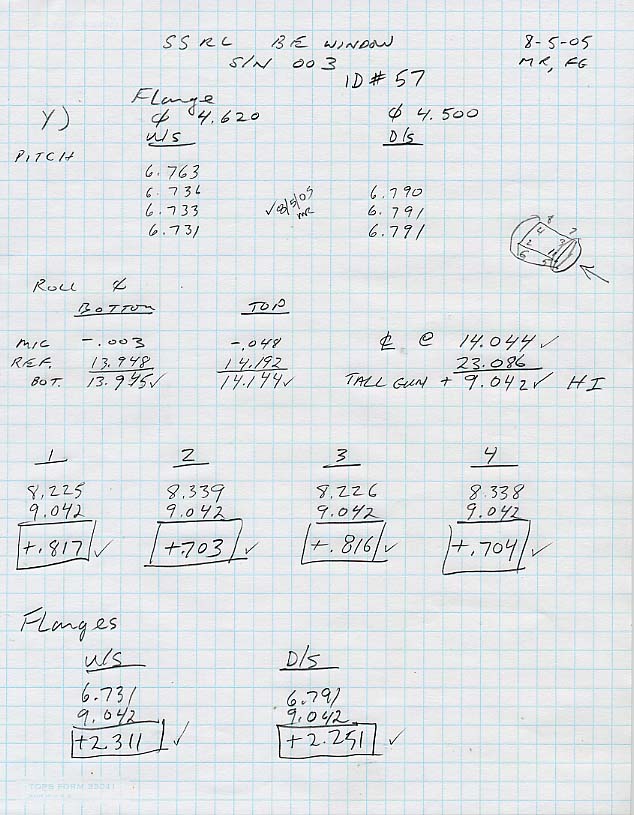 SSRL BE WINDOW 8-5-05
S/N 003 MR, FG
ID # 57
Flange
Y) ¢ 4.620 ¢ 4.500
U/S D/S
PITCH
6.763
6.736 6.790
6.733 ✓ 8/5/05 MR 6.791
6.731 6.791
8 7
4 3
2 1
6 5
ROLL ¢
BOTTOM TOP
MIC -.003 -.048 ℄ @ 14.044 ✓
REF. 13.948 14.192 23.086
BOT. 13.945 ✓ 14.144 ✓ TALL GUN + 9.042 ✓ HI
1 2 3 4
8.225 8.339 8.226 8.338
9.042 9.042 9.042 9.042
+.817 ✓ +.703 ✓ +.816 ✓ +.704 ✓
Flanges
U/S D/S
6.731 6.791
9.042 9.042
+2.311 ✓ +2.251 ✓
TOPS FORM